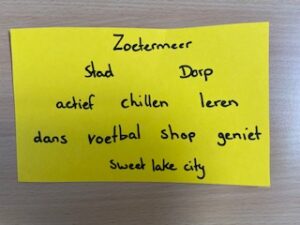 Zoetermeer
Stad Dorp
actief chillen leren
dans voetbal shop geniet
Sweet lake city